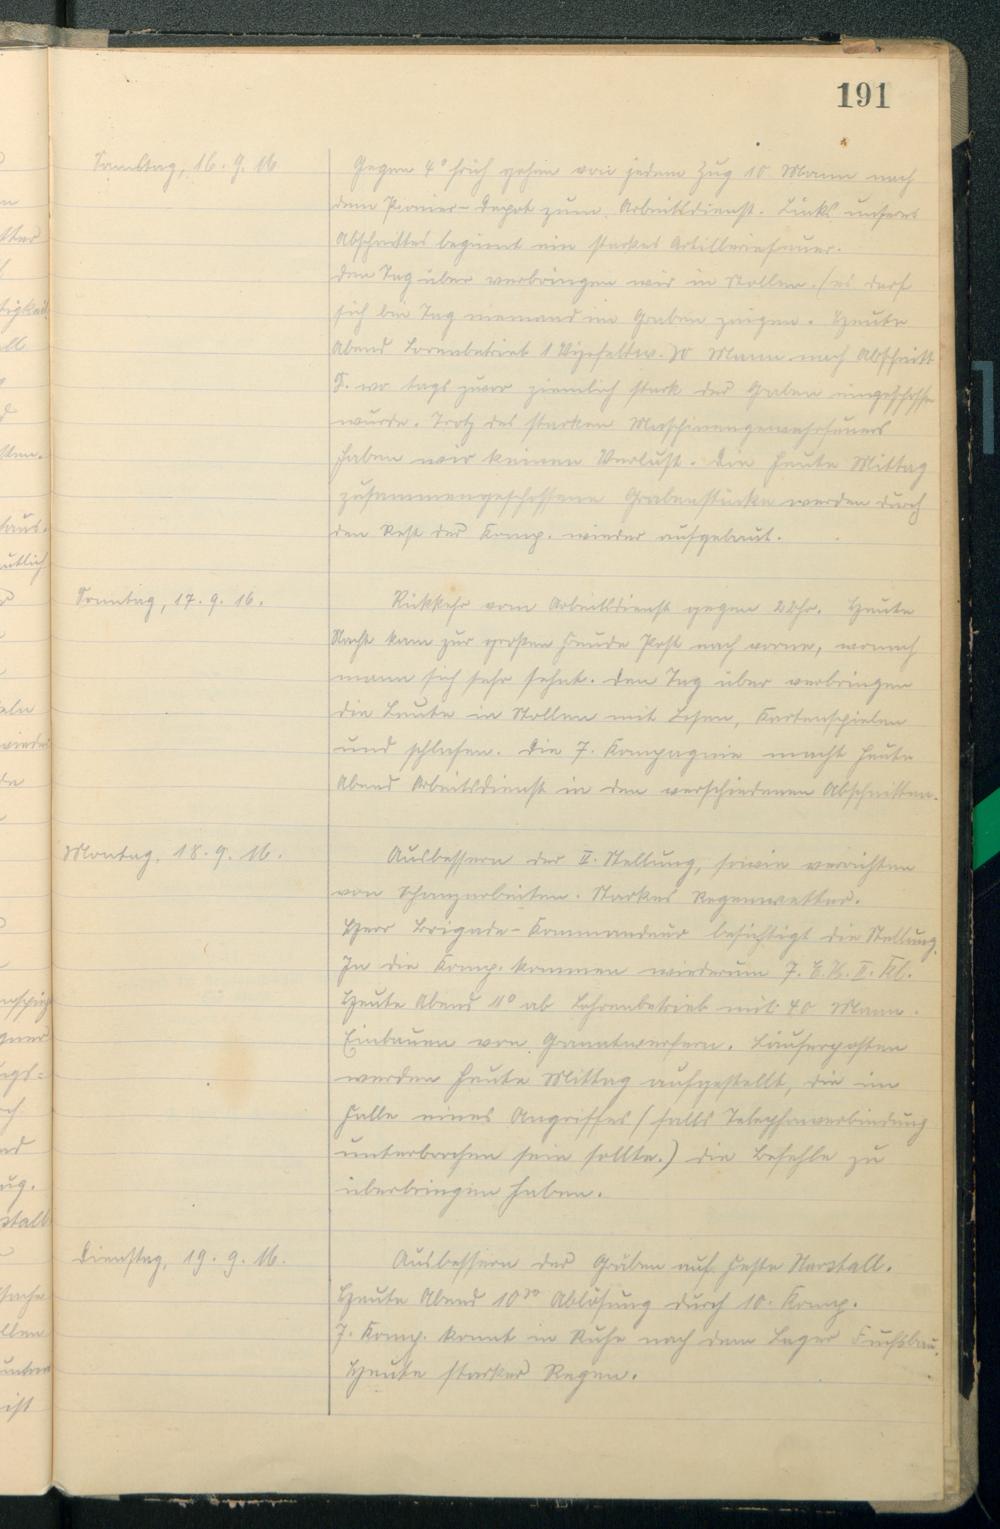 191
Samstag, 16. 9. 16
Gegen 4° früh gehen von jedem Zug 10 Mann nach
dem Pionier-Depot zum Arbeitsdienst. Links unseres
Abschnittes beginnt ein starkes Artilleriefeuer.
Den Tag über verbringen wir in Stollen. (es darf
sich bei Tag niemand im Graben zeigen. Heute
Abend Lorenbetrieb 1 Vizefeldw. 30 Mann nach Abschnitt
S. wo tags zuvor ziemlich stark der Graben eingeschossen
wurde. Trotz des starken Maschinengewehrfeuers
haben wir keinen Verlust. Die heute Mittag
zusammengeschossene Grabenstücke werden durch
den Rest der Komp. wieder aufgebaut.
Sonntag, 17. 9. 16.
Rückkehr vom Arbeitsdienst gegen 2 Uhr. Heute
Nacht kam zur großen Freude Post nach vorne, wonach
mann sich sehr sehnt. Den Tag über verbringen
die Leute in Stollen mit Lesen, Kartenspielen
und schlafen. Die 7. Kompagnie macht heute
Abend Arbeitsdienst in den verschiedenen Abschnitten.
Montag, 18. 9. 16.
Ausbessern der II. Stellung, sowie verrichten
von Schanzarbeiten. Starkes Regenwetter.
Herr Brigade-Kommandeur besichtigt die Stellung.
In die Komp. kommen wiederum 7. E. K. II. Kl.
Heute Abend 11° ab Lohrenbetrieb mit 40 Mann.
Einbauen von Granatwerfern. Läuferposten
werden heute Mittag aufgestellt, die im
Falle eines Angriffes (falls Telephonverbindung
unterbrochen sein sollte.) die Befehle zu
überbringen haben.
Dienstag, 19. 9. 16.
Ausbessern der Gräben auf Feste Marstall.
Heute Abend 10³⁰ Ablösung durch 10. Komp.
7. Komp. kommt in Ruhe nach dem Lager Fuchsbau.
Heute starker Regen.